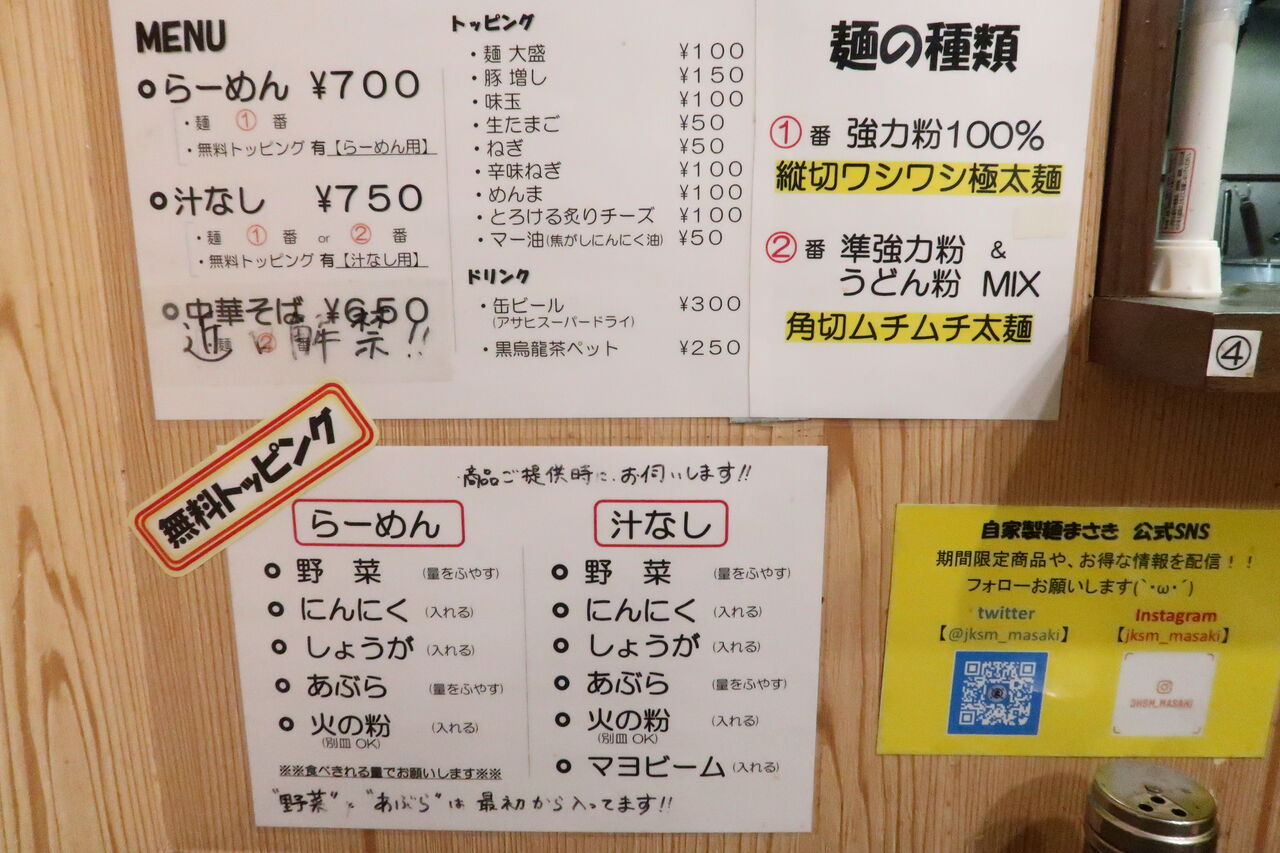 MENU
らーめん ¥700
・麺 ① 番
・無料トッピング 有【らーめん用】
汁なし ¥750
・麺 ① 番 or ② 番
・無料トッピング 有【汁なし用】
中華そば ¥650
麺 ② 番
近日解禁!!
トッピング
・麺 大盛 ¥100
・豚 増し ¥150
・味玉 ¥100
・生たまご ¥50
・ねぎ ¥50
・辛味ねぎ ¥100
・めんま ¥100
・とろける炙りチーズ ¥100
・マー油(焦がしにんにく油) ¥50
ドリンク
・缶ビール ¥300
(アサヒスーパードライ)
・黒烏龍茶ペット ¥250
麺の種類
① 番 強力粉100%
縦切ワシワシ極太麺
② 番 準強力粉 &
うどん粉 MIX
角切ムチムチ太麺
④
無料トッピング
商品ご提供時に、お伺いします!!
らーめん
野 菜 (量をふやす)
にんにく (入れる)
しょうが (入れる)
あぶら (量をふやす)
火の粉 (入れる)
(別皿 OK)
※※食べきれる量でお願いします※※
汁なし
野 菜 (量をふやす)
にんにく (入れる)
しょうが (入れる)
あぶら (量をふやす)
火の粉 (入れる)
(別皿 OK)
マヨビーム (入れる)
"野菜"と"あぶら"は 最初から入ってます!!
自家製麺まさき 公式SNS
期間限定商品や、お得な情報を配信!!
フォローお願いします(`･ω･´)
twitter
【@jksm_masaki】
Instagram
【jksm_masaki】
JKSM_MASAKI